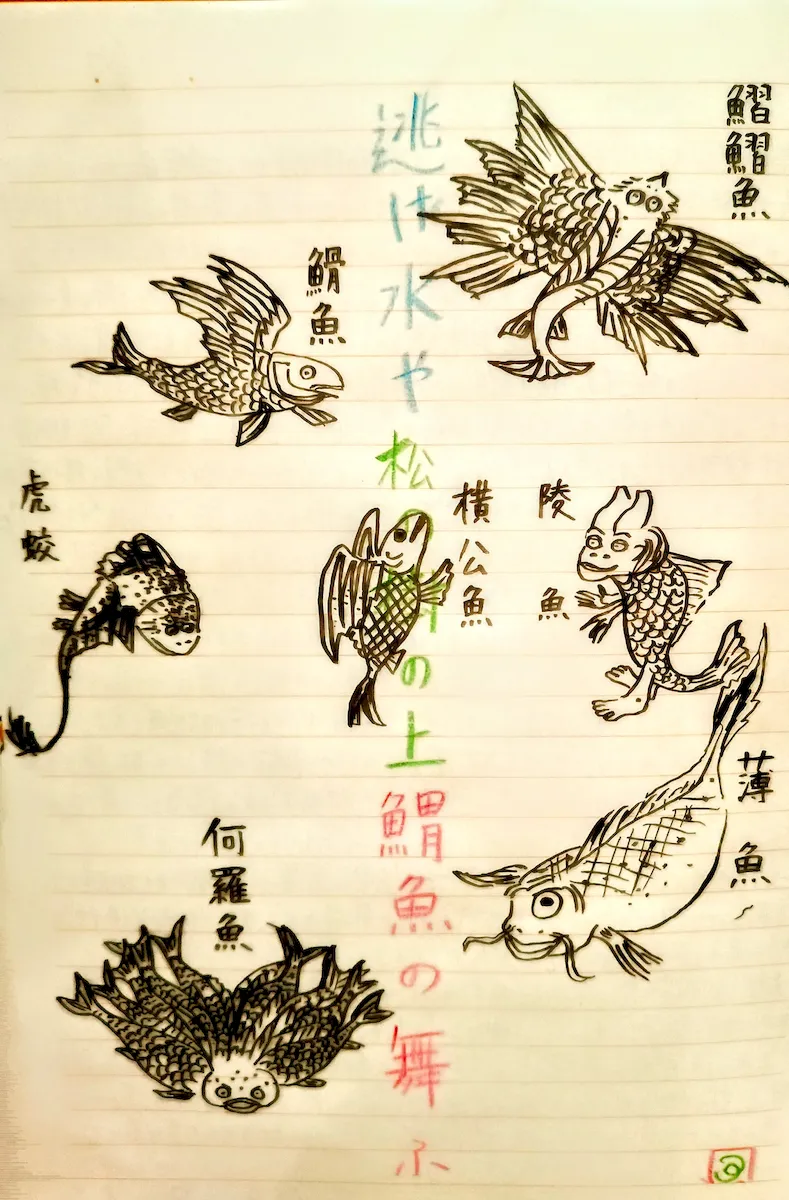 鰼鰼魚
逃げ水や松の の上䱻魚の舞ふ
䱻魚
虎蛟
横公魚
陵魚
薄魚
何羅魚